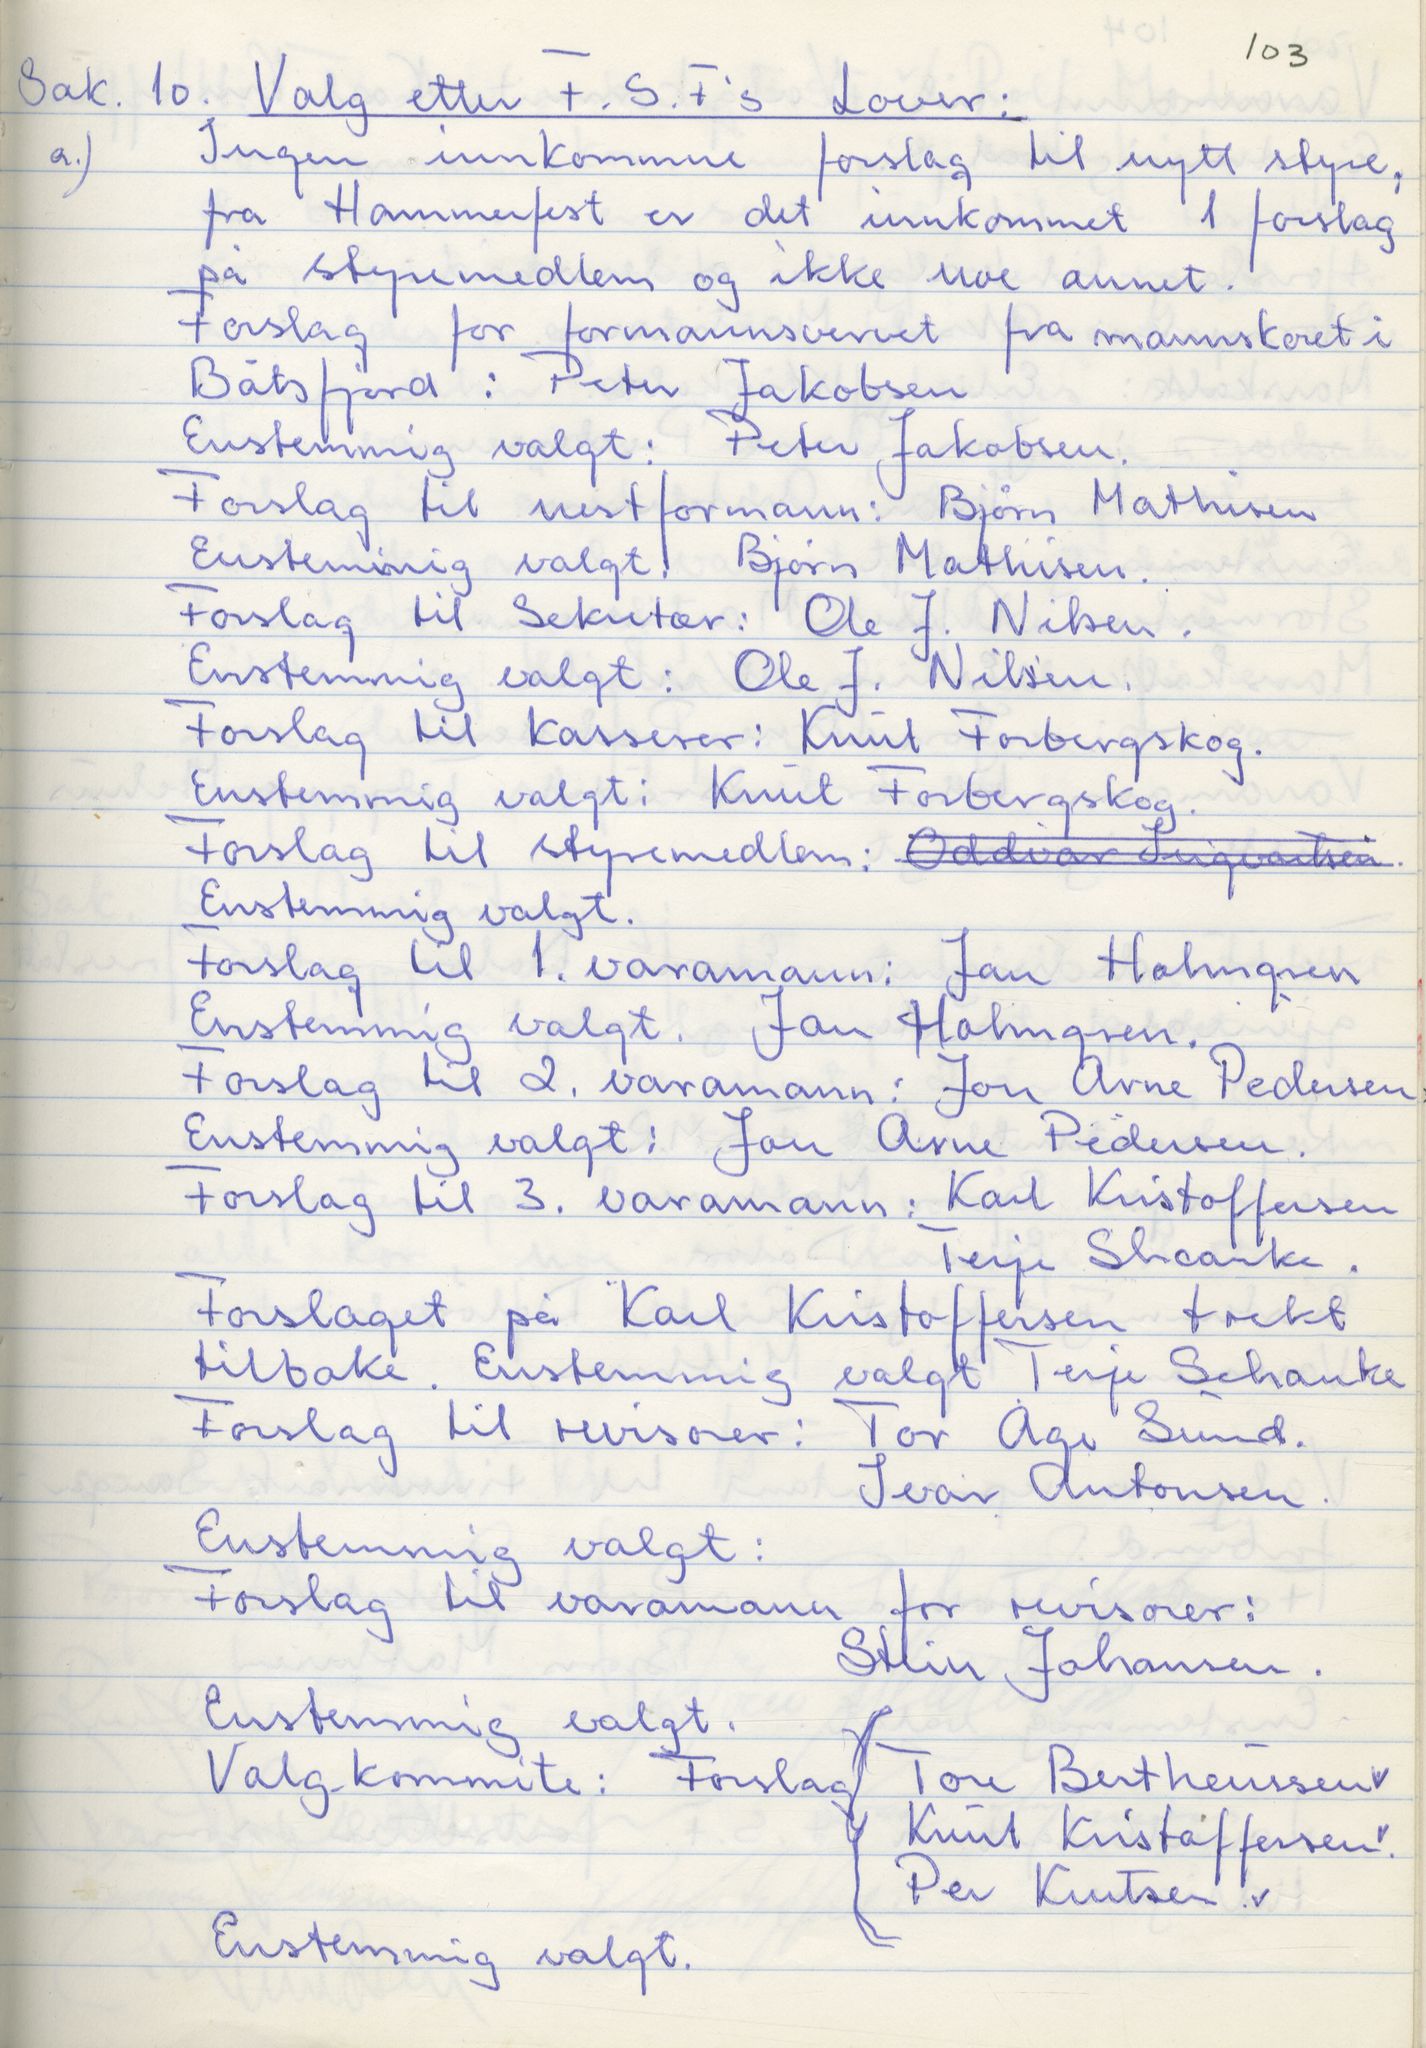 103
Sak. 10. Valg etter F.S.F's Lover:
a.) Ingen innkomne forslag til nytt styre,
fra Hammerfest er det innkommet 1 forslag
på styremedlem og ikke noe annet.
Forslag for formannsvervet fra mannskoret i
Båtsfjord : Peter Jakobsen
Enstemmig valgt: Peter Jakobsen.
Forslag til nestformann: Bjørn Mathisen
Enstemmig valgt: Bjørn Mathisen.
Forslag til Sekretær: Ole J. Nilsen.
Enstemmig valgt: Ole J. Nilsen.
Forslag til kasserer: Knut Forbergskog.
Enstemmig valgt: Knut Forbergskog.
Forslag til styremedlem: Oddvar Ingvartsen.
Enstemmig valgt.
Forslag til 1. varamann: Jan Holmgren
Enstemmig valgt. Jan Holmgren.
Forslag til 2. varamann: Jon Arne Pedersen
Enstemmig valgt: Jon Arne Pedersen.
Forslag til 3. varamann: Karl Kristoffersen
Terje Shcanke.
Forslaget på Karl Kristoffersen trekt
tilbake. Enstemmig valgt Terje Schanke
Forslag til revisorer: Tor Åge Sund.
Ivar Antonsen.
Enstemmig valgt:
Forslag til varamann for revisorer:
Stein Johansen.
Enstemmig valgt.
Valg-kommite: Forslag Tore Bertheussen
Knut Kristoffersen.
Per Knutsen.
Enstemmig valgt.